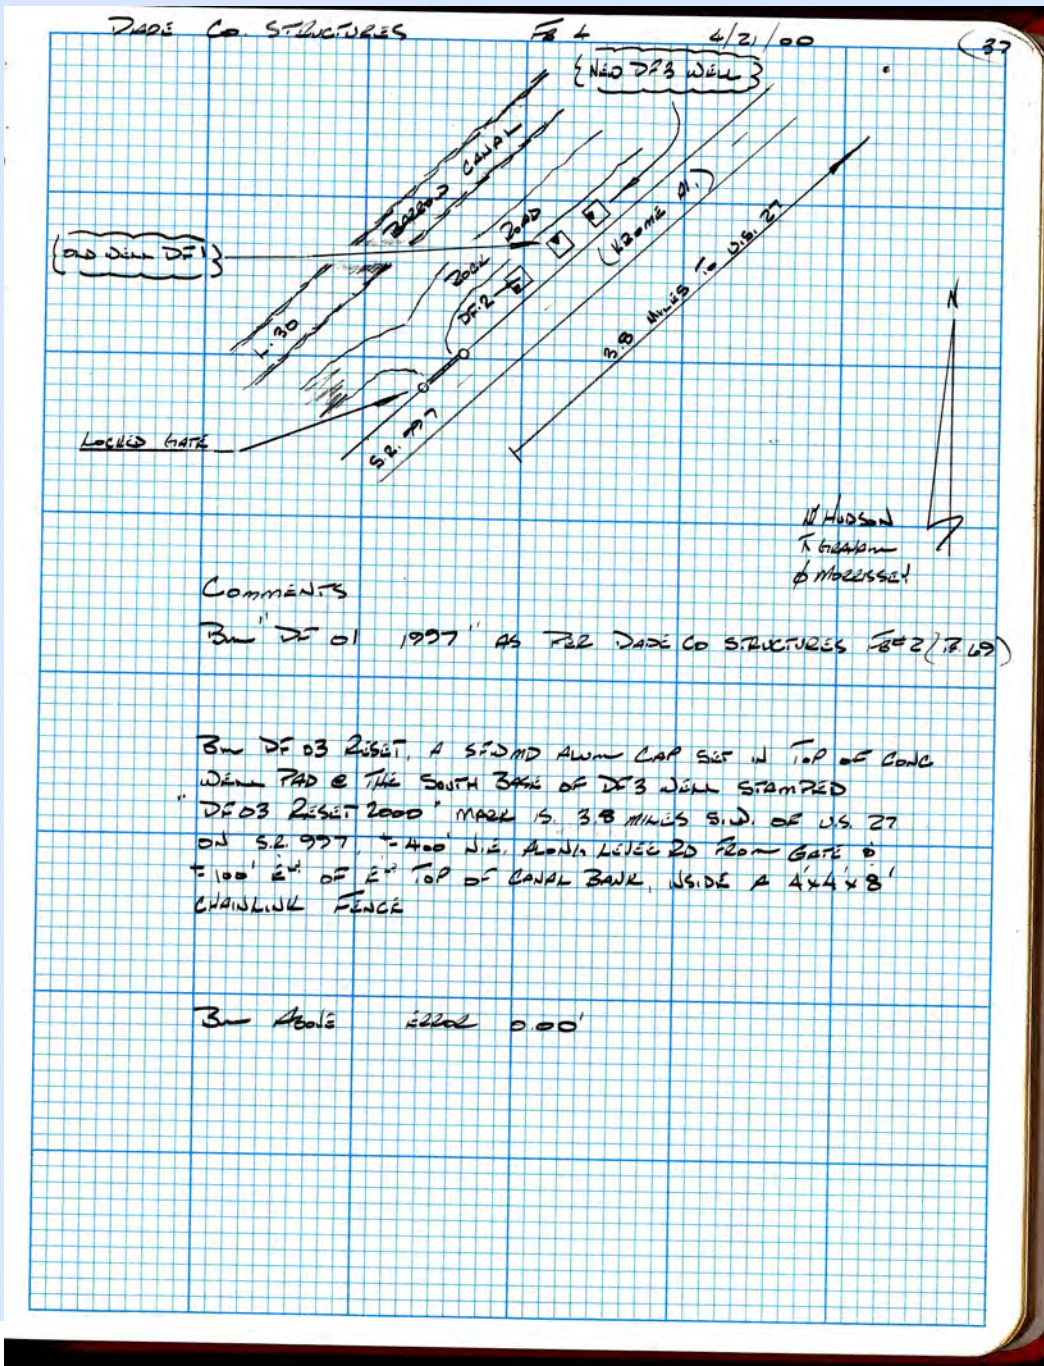 DADE CO. STRUCTURES FB 4 4/21/00 37
NEW DF3 WELL
BARROW CANAL
OLD WELL DF1
ROCK ROAD
(KROME AV.)
DF-2
L.30
3.8 MILES TO U.S. 27
N
LOCKED GATE
S.R. 997
HUDSON
GRAHAM
MORRISSEY
COMMENTS
BM "DF 01 1997" AS PER DADE CO STRUCTURES FB#2 (P. 69)
BM DF 03 RESET, A SFWMD ALUM CAP SET IN TOP OF CONC
WELL PAD @ THE SOUTH BASE OF DF3 WELL STAMPED
"DF03 RESET 2000" MARK IS 3.8 MILES S.W. OF U.S. 27
ON S.R. 997, ±400' N.E. ALONG LEVEE RD FROM GATE &
±100' E'LY OF E'LY TOP OF CANAL BANK, INSIDE A 4'x4'x8'
CHAINLINK FENCE
BM ABOVE ERROR 0.00'